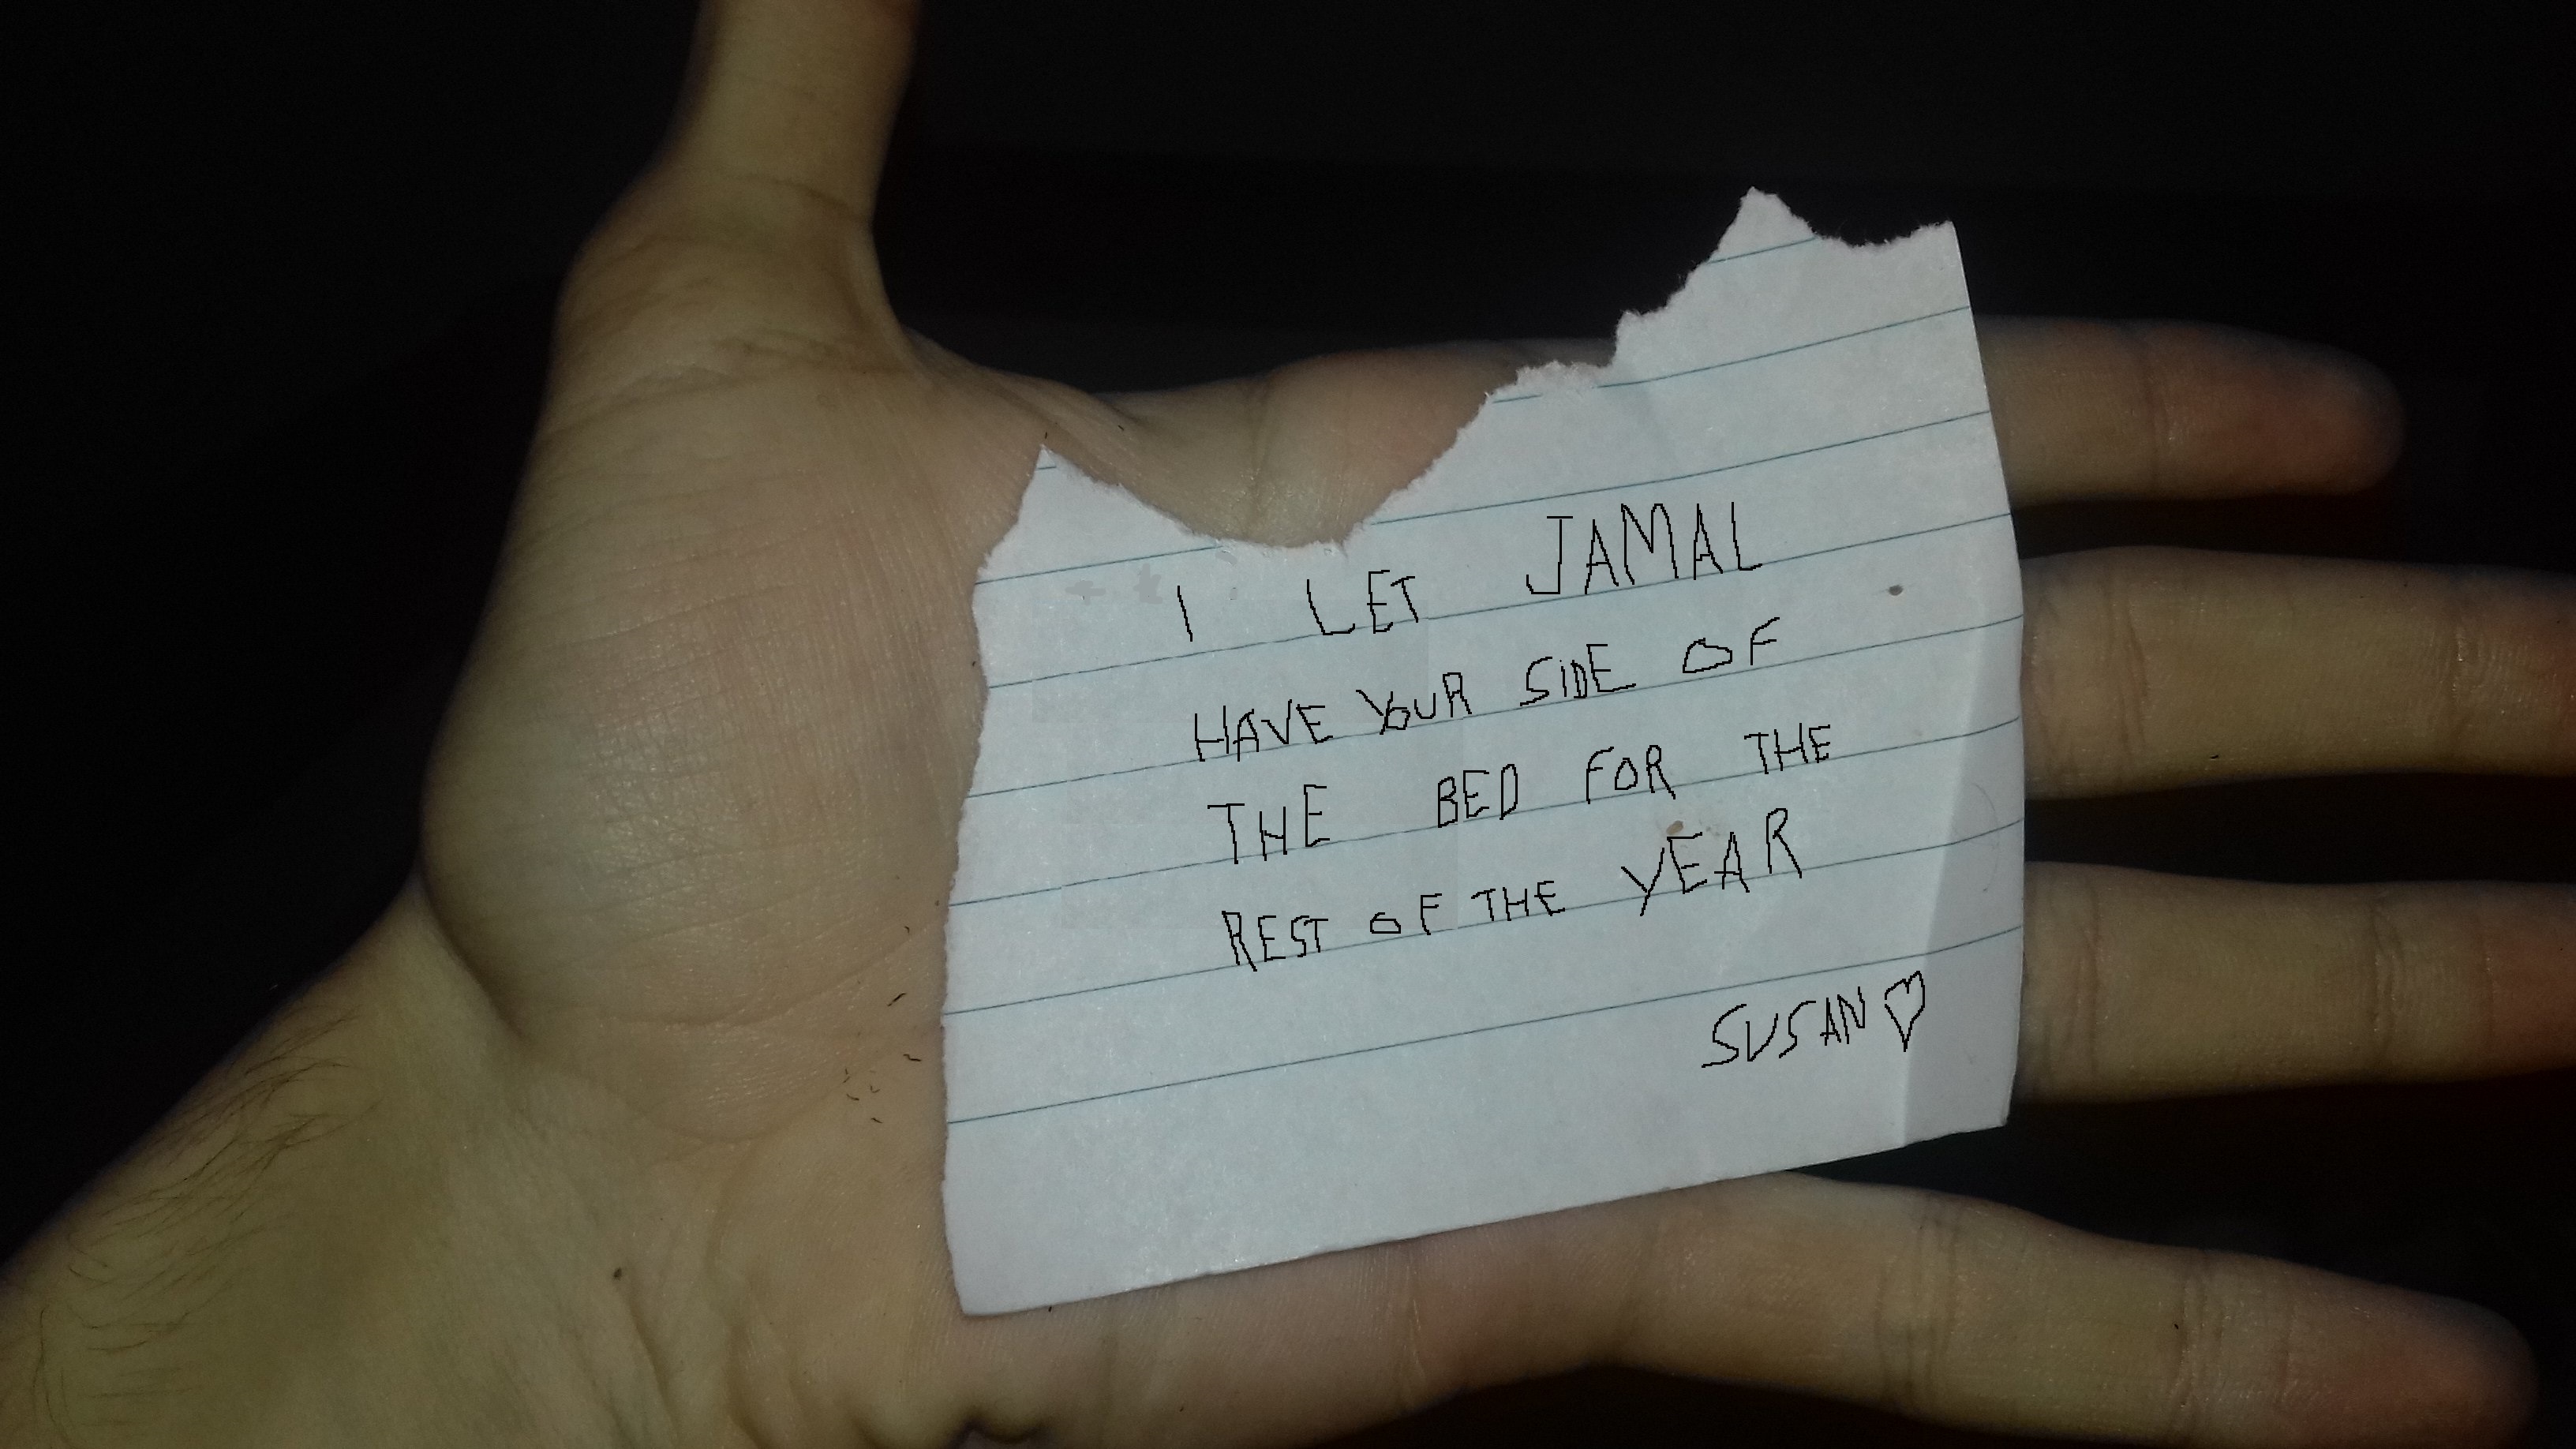 I LET JAMAL
HAVE YOUR SIDE OF
THE BED FOR THE
REST OF THE YEAR
SUSAN♡